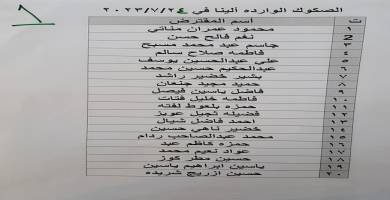 الصكوك الوارده ألينا في ٢٠٢٣/٧/٢٤
ت أسم المقترض
١ محمود عمران مناتي
2 نغم فالح حسن
٣ جاسم عبد محمد مسبح
٤ فاطمه صلاح سالم
٥ علي عبدالحسين يوسف
٦ عبدالحليم حسين محمد
٧ بشير خضير راشد
٨ حميد مجيد جنعان
٩ فاضل ياسين فيصل
١٠ فاطمه خليل فتات
١١ حمزه بلعوط لفته
١٢ فضيله ثجيل عويز
١٣ احمد فاضل شيال
١٤ خضير ناهي حسين
١٥ محمد عبدالصاحب ردام
١٦ حمزه كاظم عبد
١٧ عواد نعيم محمد
١٨ حسين مطر كوز
١٩ ياسين ابراهيم ياسين
٢٠ حسين ازريج شريده